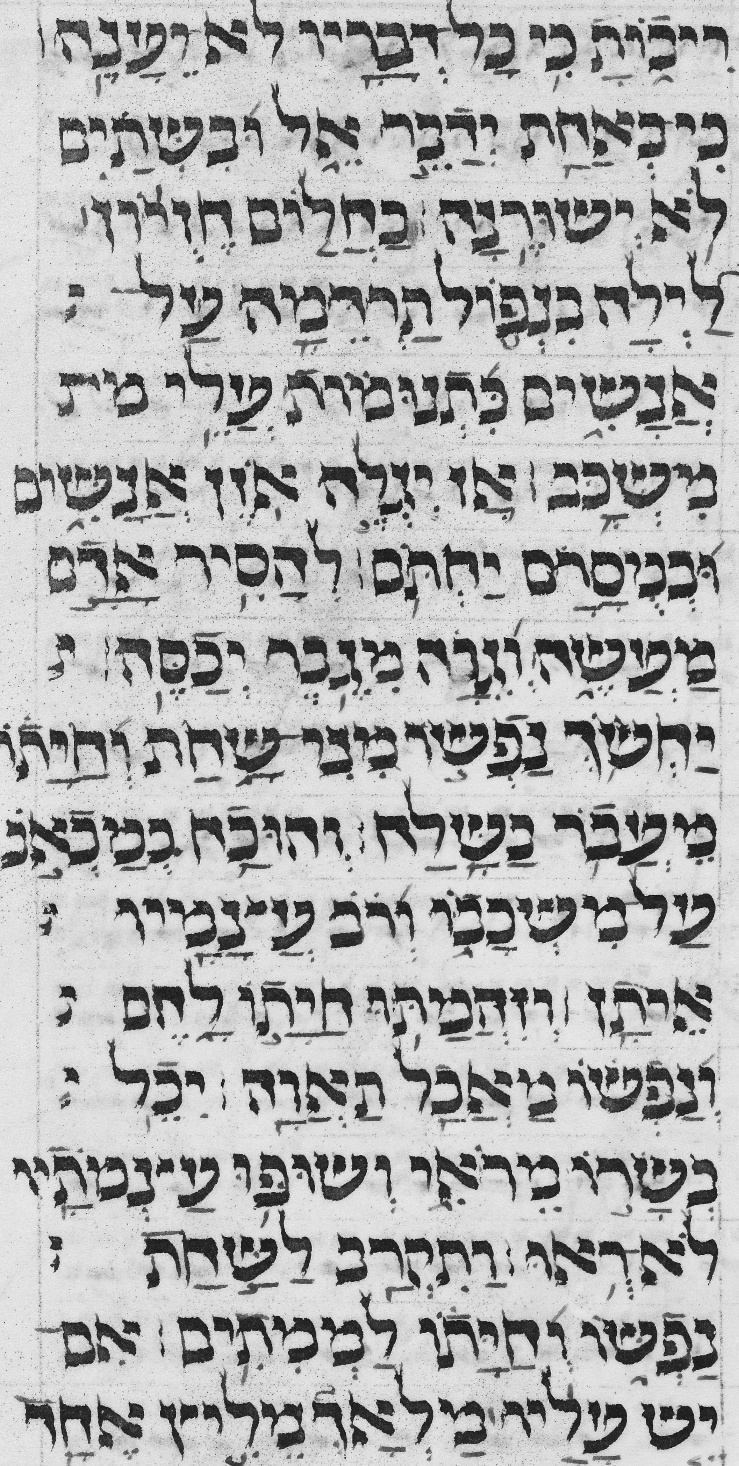 רִיבוֹתָ כִּי כָל דְּבָרָיו לֹא יַעֲנֶה
כִּי בְאַחַת יְדַבֶּר אֵל וּבִשְׁתַּיִם
לֹא יְשׁוּרֶנָּה׃ בַּחֲלוֹם חֶזְיוֹן
לַיְלָה בִּנְפוֹל תַּרְדֵּמָה עַל
אֲנָשִׁים בִּתְנוּמוֹת עֲלֵי
מִשְׁכָּב׃ אָז יִגְלֶה אֹזֶן אֲנָשִׁים
וּבְמֹסָרָם יַחְתֹּם׃ לְהָסִיר אָדָם
מַעֲשֶׂה וְגֵוָה מִגֶּבֶר יְכַסֶּה׃
יַחְשֹׂךְ נַפְשׁוֹ מִנִּי שָׁחַת וְחַיָּתוֹ
מֵעֲבֹר בַּשָּׁלַח׃ וְהוּכַח בְּמַכְאֹב
עַל מִשְׁכָּבוֹ וְרֹב עֲצָמָיו
אֵיתָן׃ וְזִהֲמַתּוּ חַיָּתוֹ לָחֶם
וְנַפְשׁוֹ מַאֲכַל תַּאֲוָה׃ יִכֶל
בְּשָׂרוֹ מֵרֹאִי וְשׁוּפּוּ עַצְמֹתָיו
לֹא רֻאוּ׃ וַתִּקְרַב לַשַּׁחַת
נַפְשׁוֹ וְחַיָּתוֹ לַמְמִתִים׃ אִם
יֵשׁ עָלָיו מַלְאָךְ מֵלִיץ אֶחָד